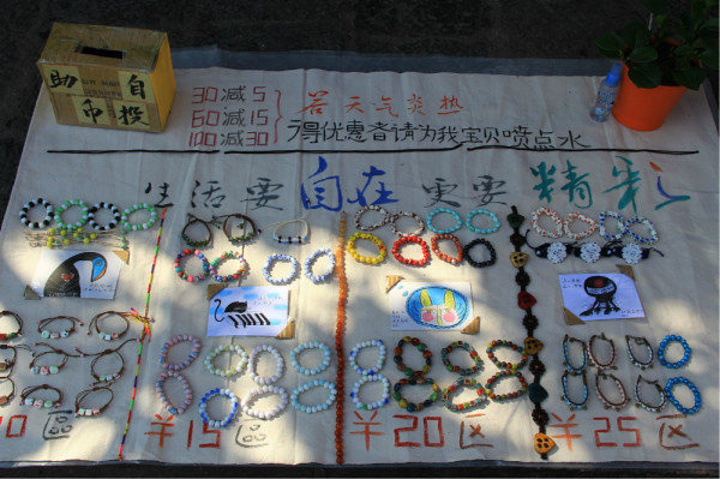 自助
投币
30减5
60减15
100减30
若天气炎热
得优惠者请为我宝贝喷点水
生活要自在更要精彩
10區
¥15區
¥20區
¥25區